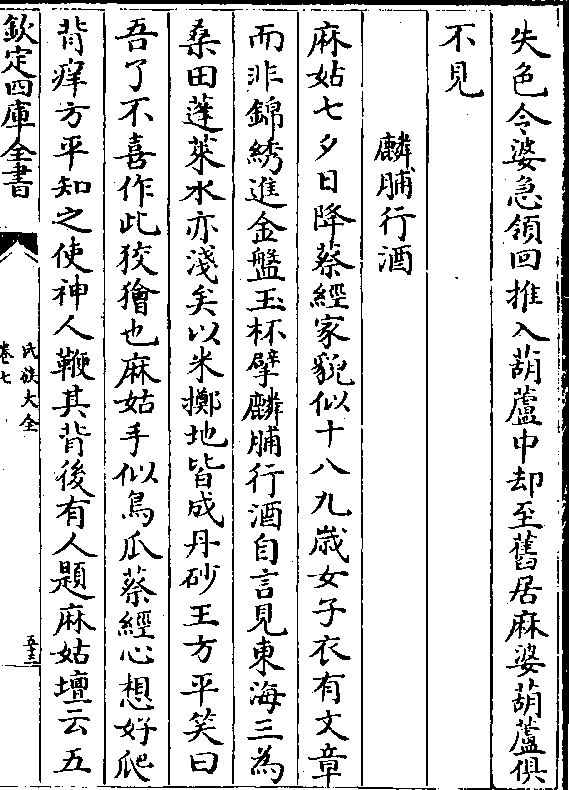 失色令婆急領回推入葫蘆中却至舊居麻婆葫蘆俱
不見
麟脯行酒
麻姑七夕日降蔡經家貌似十八九歳女子衣有文章
而非錦綉進金盤玉杯擘麟脯行酒自言見東海三為
桑田蓬萊水亦淺矣以米擲地皆成丹砂王方平笑曰
吾了不喜作此狡獪也麻姑手似鳥瓜蔡經心想好爬
背痒方平知之使神人鞭其背後有人題麻姑壇云五
欽定四庫全書
氏族大全
卷七
五十三